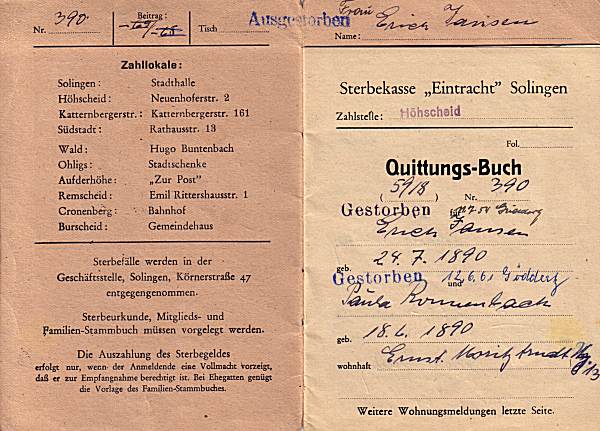 Nr. 390
Beitrag:
Tisch
Ausgestorben
Zahllokale:
Solingen: Stadthalle
Höhscheid: Neuenhoferstr. 2
Katternbergerstr.: Katternbergerstr. 161
Südstadt: Rathausstr. 13
Wald: Hugo Buntenbach
Ohligs: Stadtschenke
Aufderhöhe: „Zur Post"
Remscheid: Emil Rittershausstr. 1
Cronenberg: Bahnhof
Burscheid: Gemeindehaus
Sterbefälle werden in der
Geschäftsstelle, Solingen, Körnerstraße 47
entgegengenommen.
Sterbeurkunde, Mitglieds- und
Familien-Stammbuch müssen vorgelegt werden.
Die Auszahlung des Sterbegeldes
erfolgt nur, wenn der Anmeldende eine Vollmacht vorzeigt,
daß er zur Empfangnahme berechtigt ist. Bei Ehegatten genügt
die Vorlage des Familien-Stammbuches.
Frau
Name: Erich Jansen
Sterbekasse „Eintracht" Solingen
Zahlstelle: Höhscheid
Fol.
Quittungs-Buch
(59/8) Nr. 390
Gestorben
Erich Jansen
geb. 24. 7. 1890
Gestorben 12.6.61
und
Paula
geb. 18. 6. 1890
wohnhaft Ernst Moritz Arndt
Weitere Wohnungsmeldungen letzte Seite.